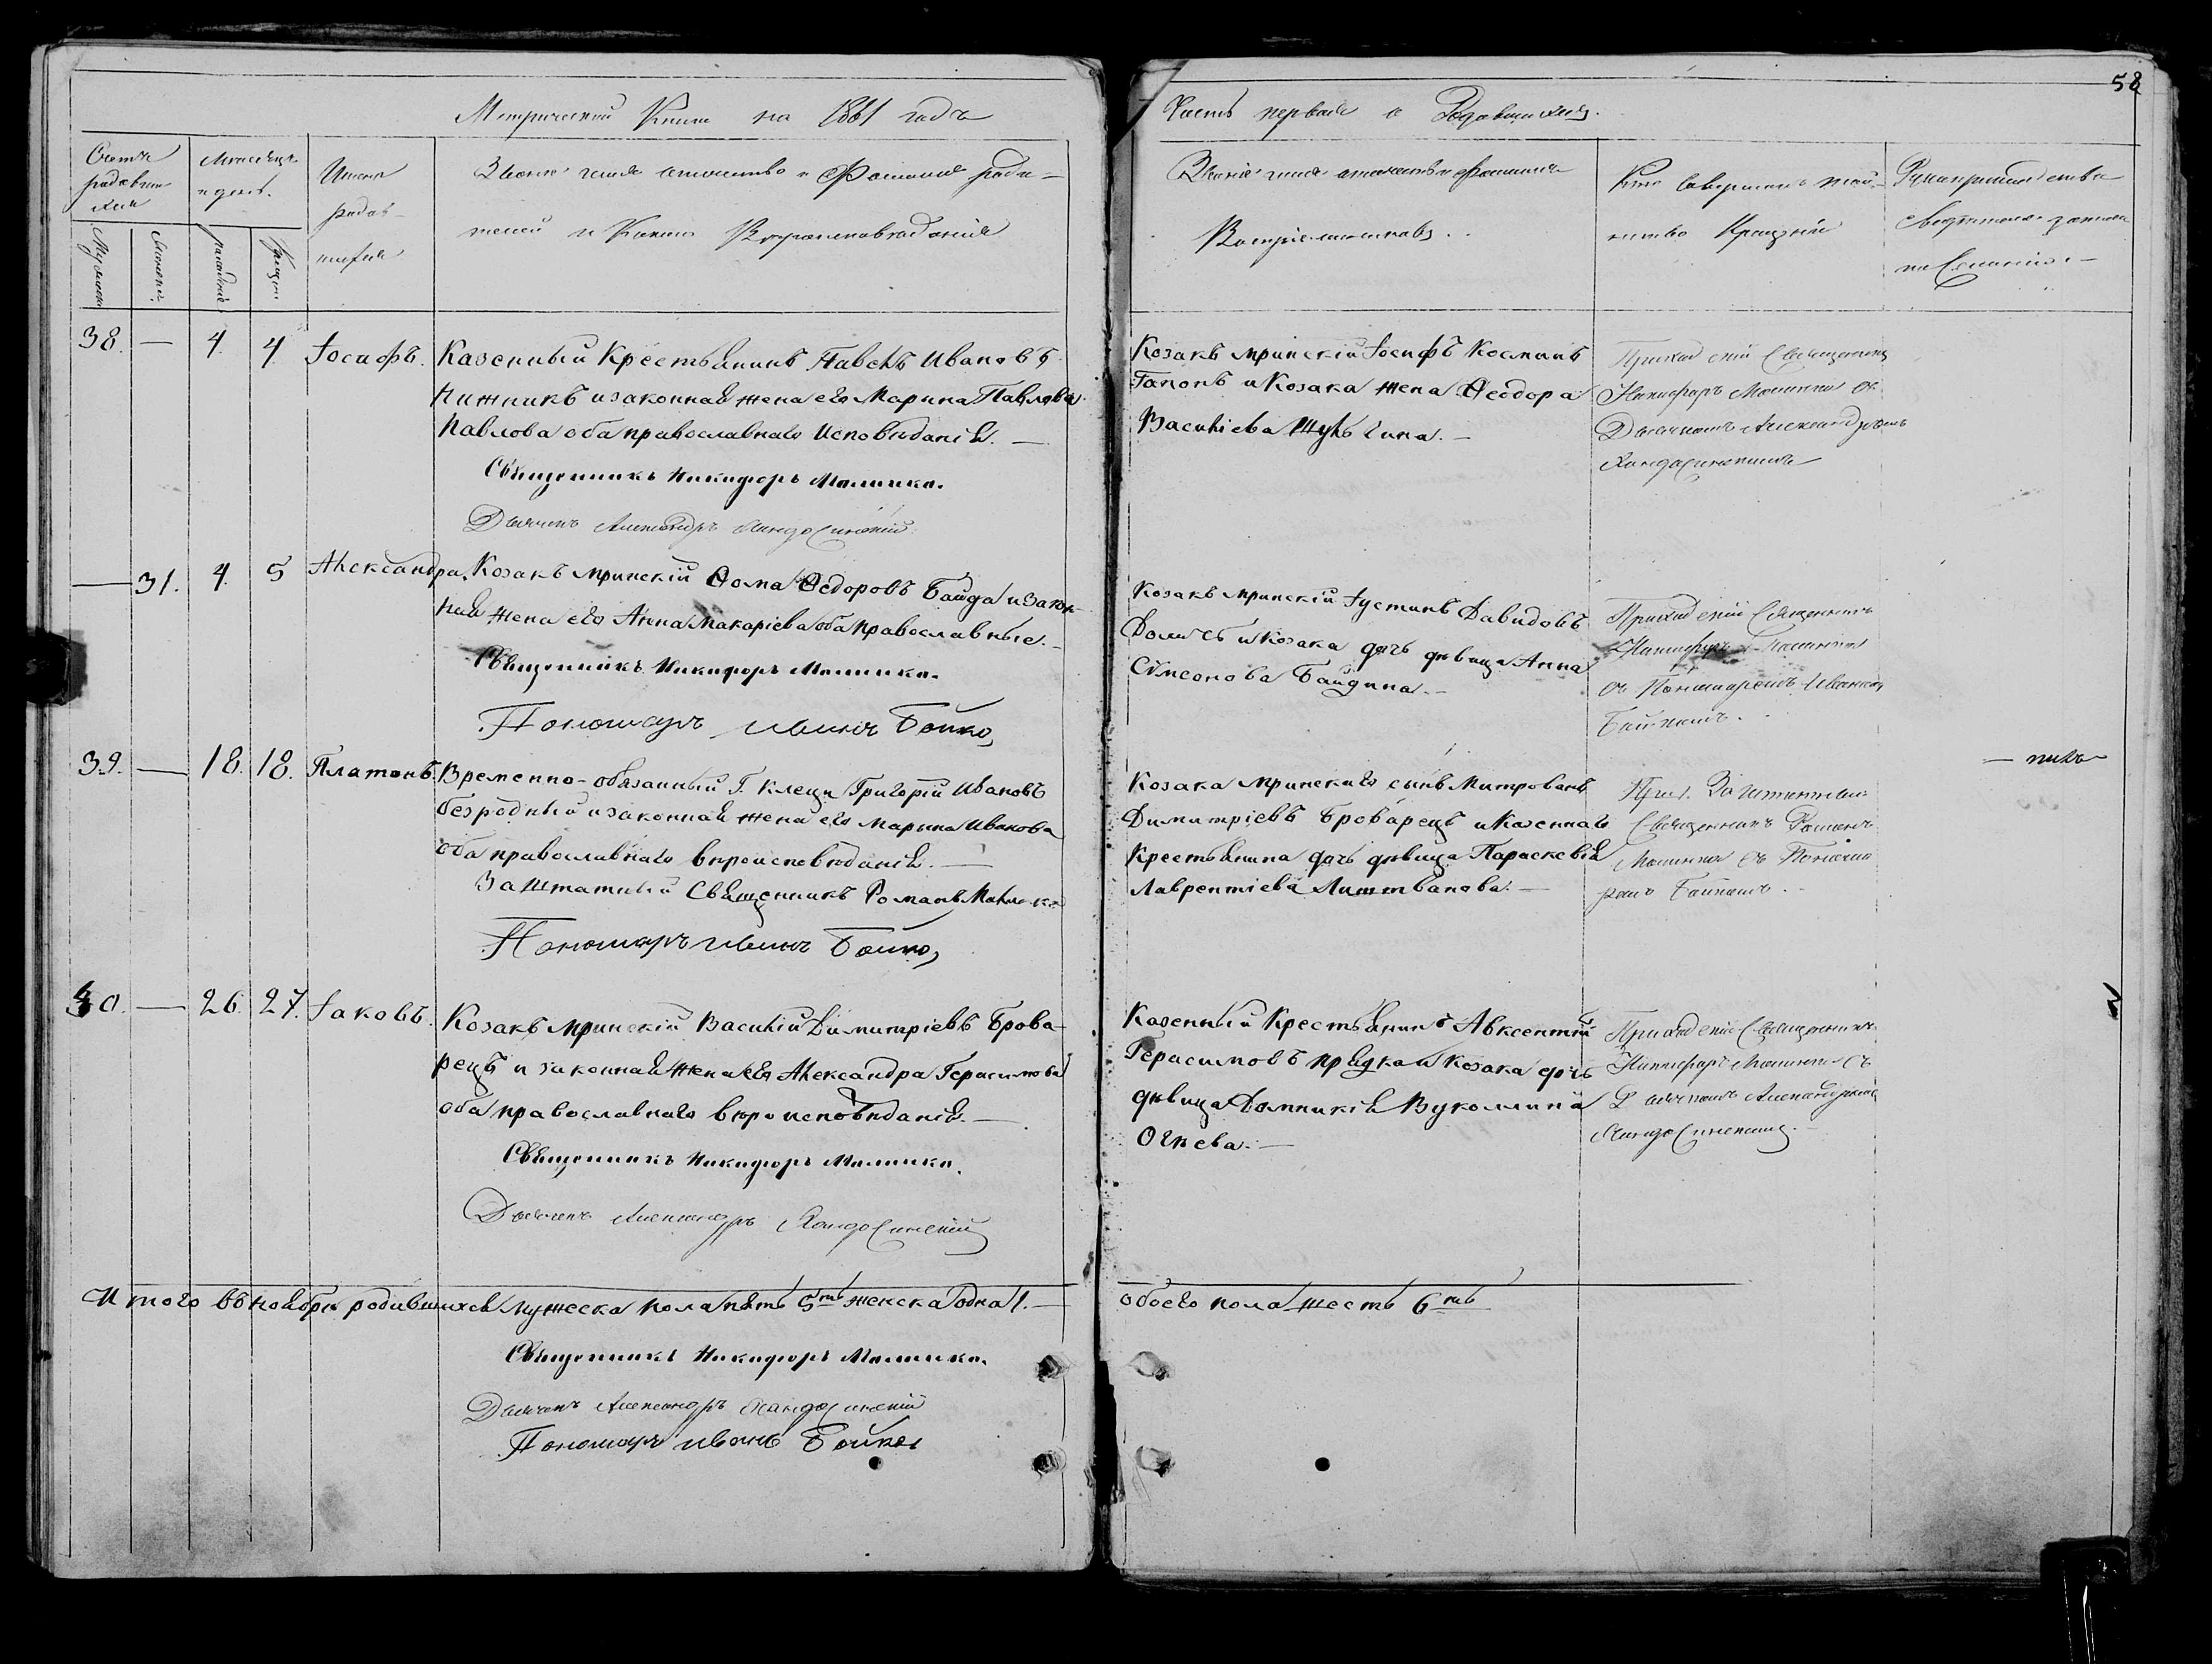 58
Метрической Книги на 1861 годъ
Часть первая о Родившихся.
Счетъ родившихся
Мужеска
Женска
Месяцъ и день.
рожденія
крещен
Имена родившихся
Званіе имя отчество и Фамилія роди-
телей и Какого Вѣроисповѣданія
Званіе имя отчество и фамилія
Воспріемниковъ.
Кто совершалъ таин-
ство Крещенія
Рукоприкладство
свидѣтелей записи
по желанію.
38. — 4. 4. Іосифъ.
Казенный Крестьянинъ Павелъ Ивановъ
Нижникъ и законная жена его Марина Павлова
Павлова оба православнаго исповѣданія. —
Священникъ Никифоръ Малинка.
Дьячекъ Александръ
Козакъ мринскій Іосифъ Косминъ
Гапонъ и Козака жена Феодора
Василіева Шульгина. —
Приходскій Священникъ
Никифоръ Малинка съ
Дьячкомъ Александромъ
— 31. 4. 5 Александра.
Козакъ мринскій Фома Федоровъ Байда и закон-
ная жена его Анна Макаріева оба православные. —
Священникъ Никифоръ Малинка.
Пономарь Иванъ Бойко,
Козакъ мринскій Іустинъ Давидовъ
и козака дочь дѣвица Анна
Сѵмеонова Байдина. —
Приходскій Священникъ
Никифоръ Малинка
съ Пономаремъ Иваномъ
Бойкомъ.
39. — 18. 18. Платонъ.
Временно-обязанный Г. Клеци Григорій Ивановъ
безродный и законная жена его Марина Иванова
оба православнаго вѣроисповѣданія. —
Заштатный Священникъ Романъ Малинка
Пономарь Иванъ Бойко,
Козака мринскаго сынъ Митрофанъ
Димитріевъ Броварецъ и Казеннаго
Крестьянина дочь дѣвица Параскевія
Лаврентіева Литванова. —
Заштатный
Священникъ Романъ
Малинка съ Понома-
ремъ Бойкомъ.
40. — 26. 27. Іаковъ.
Козакъ мринскій Василій Димитріевъ Брова-
рецъ и законная жена его Александра Герасимова
оба православнаго вѣроисповѣданія. —
Священникъ Никифоръ Малинка.
Дьячекъ Александръ
Казенный Крестьянинъ Авксентій
Герасимовъ прядка и козака дочь
дѣвица Домникія Вуколлина
Огнева. —
Приходскій Священникъ
Никифоръ Малинка съ
Дьячкомъ Александромъ
Итого въ ноябрѣ родившихся мужеска пола пять 5ть женска одна 1. —
обоего пола шесть 6ть
Священникъ Никифоръ Малинка.
Дьячекъ Александръ
Пономарь Иванъ Бойко